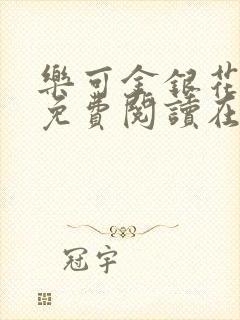 樂可金銀花
免費閱讀在
冠宇